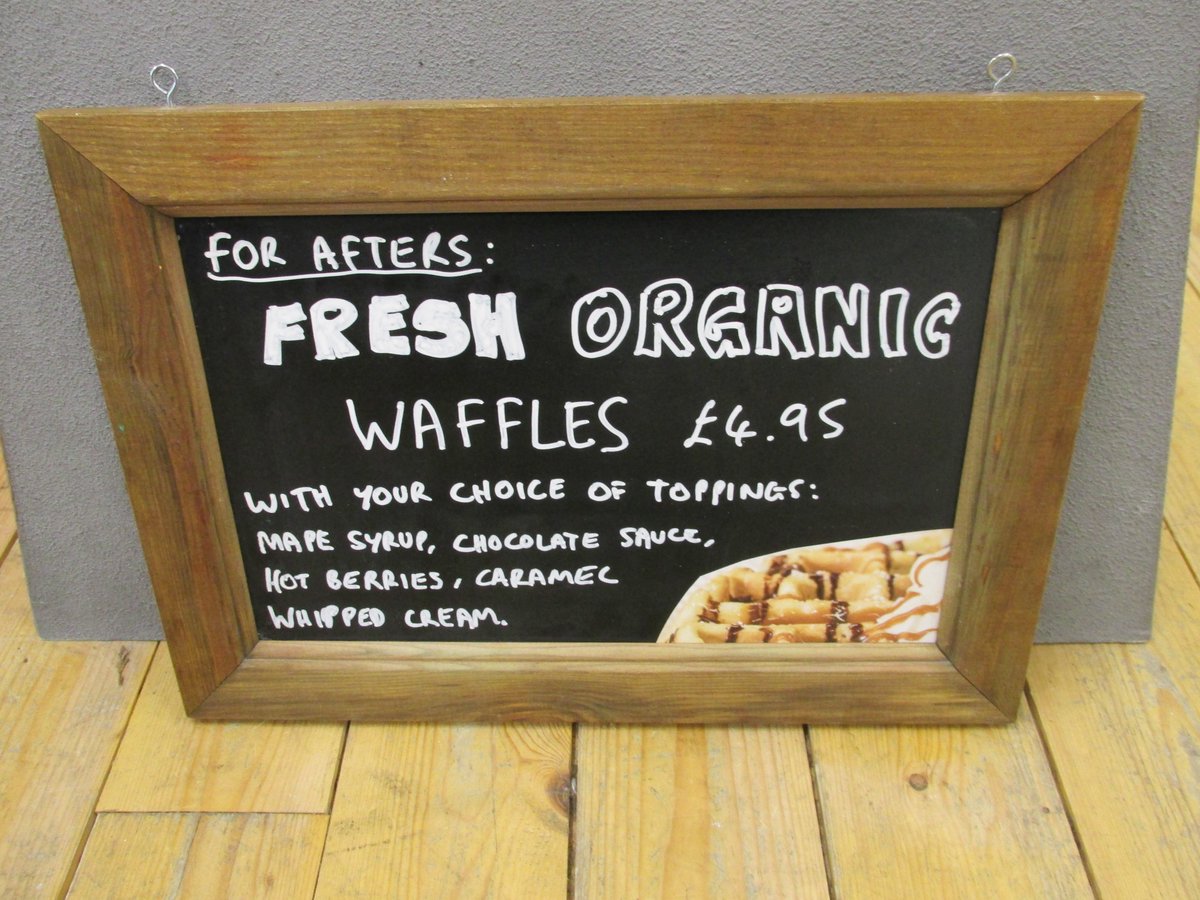 FOR AFTERS:
FRESH ORGANIC
WAFFLES £4.95
WITH YOUR CHOICE OF TOPPINGS:
MAPE SYRUP, CHOCOLATE SAUCE,
HOT BERRIES, CARAMEL
WHIPPED CREAM.